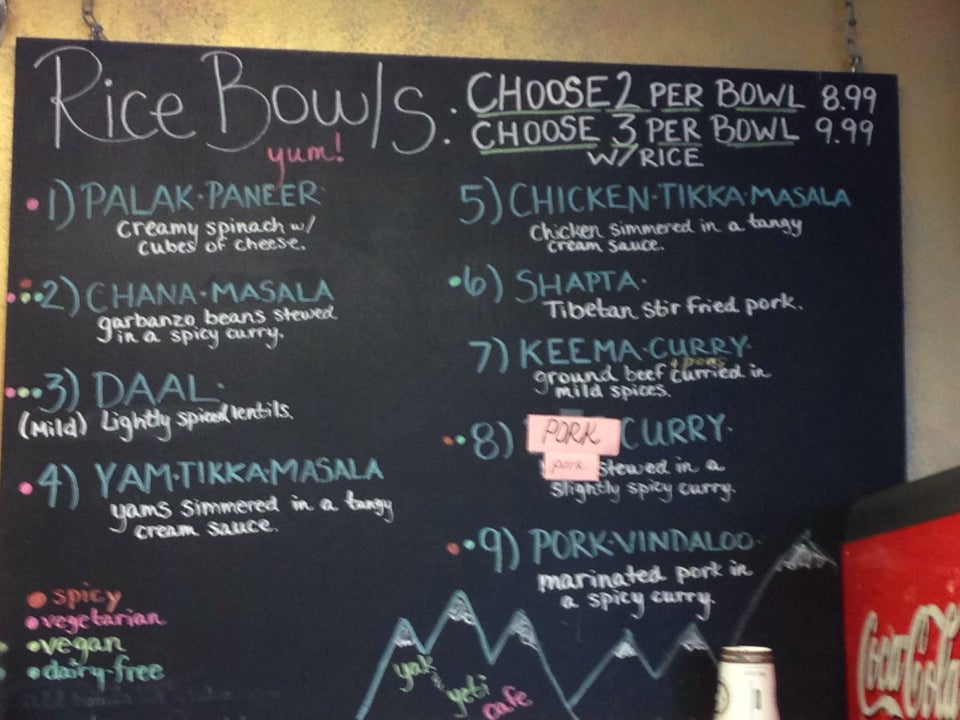 Rice Bowls.
yum!
CHOOSE 2 PER BOWL 8.99
CHOOSE 3 PER BOWL 9.99
W/ RICE
1) PALAK·PANEER
Creamy spinach w/
cubes of cheese.
2) CHANA·MASALA
garbanzo beans stewed
in a spicy curry.
3) DAAL·
(Mild) Lightly spiced lentils.
4) YAM·TIKKA·MASALA
yams simmered in a tangy
cream sauce.
5) CHICKEN·TIKKA·MASALA
Chicken simmered in a tangy
cream sauce.
6) SHAPTA·
Tibetan stir fried pork.
7) KEEMA·CURRY·
ground beef curried in
mild spices.
8) PORK CURRY·
pork stewed in a
slightly spicy curry.
9) PORK·VINDALOO·
marinated pork in
a spicy curry.
spicy
vegetarian
vegan
dairy-free
yak &
yeti
cafe
Coca-Cola